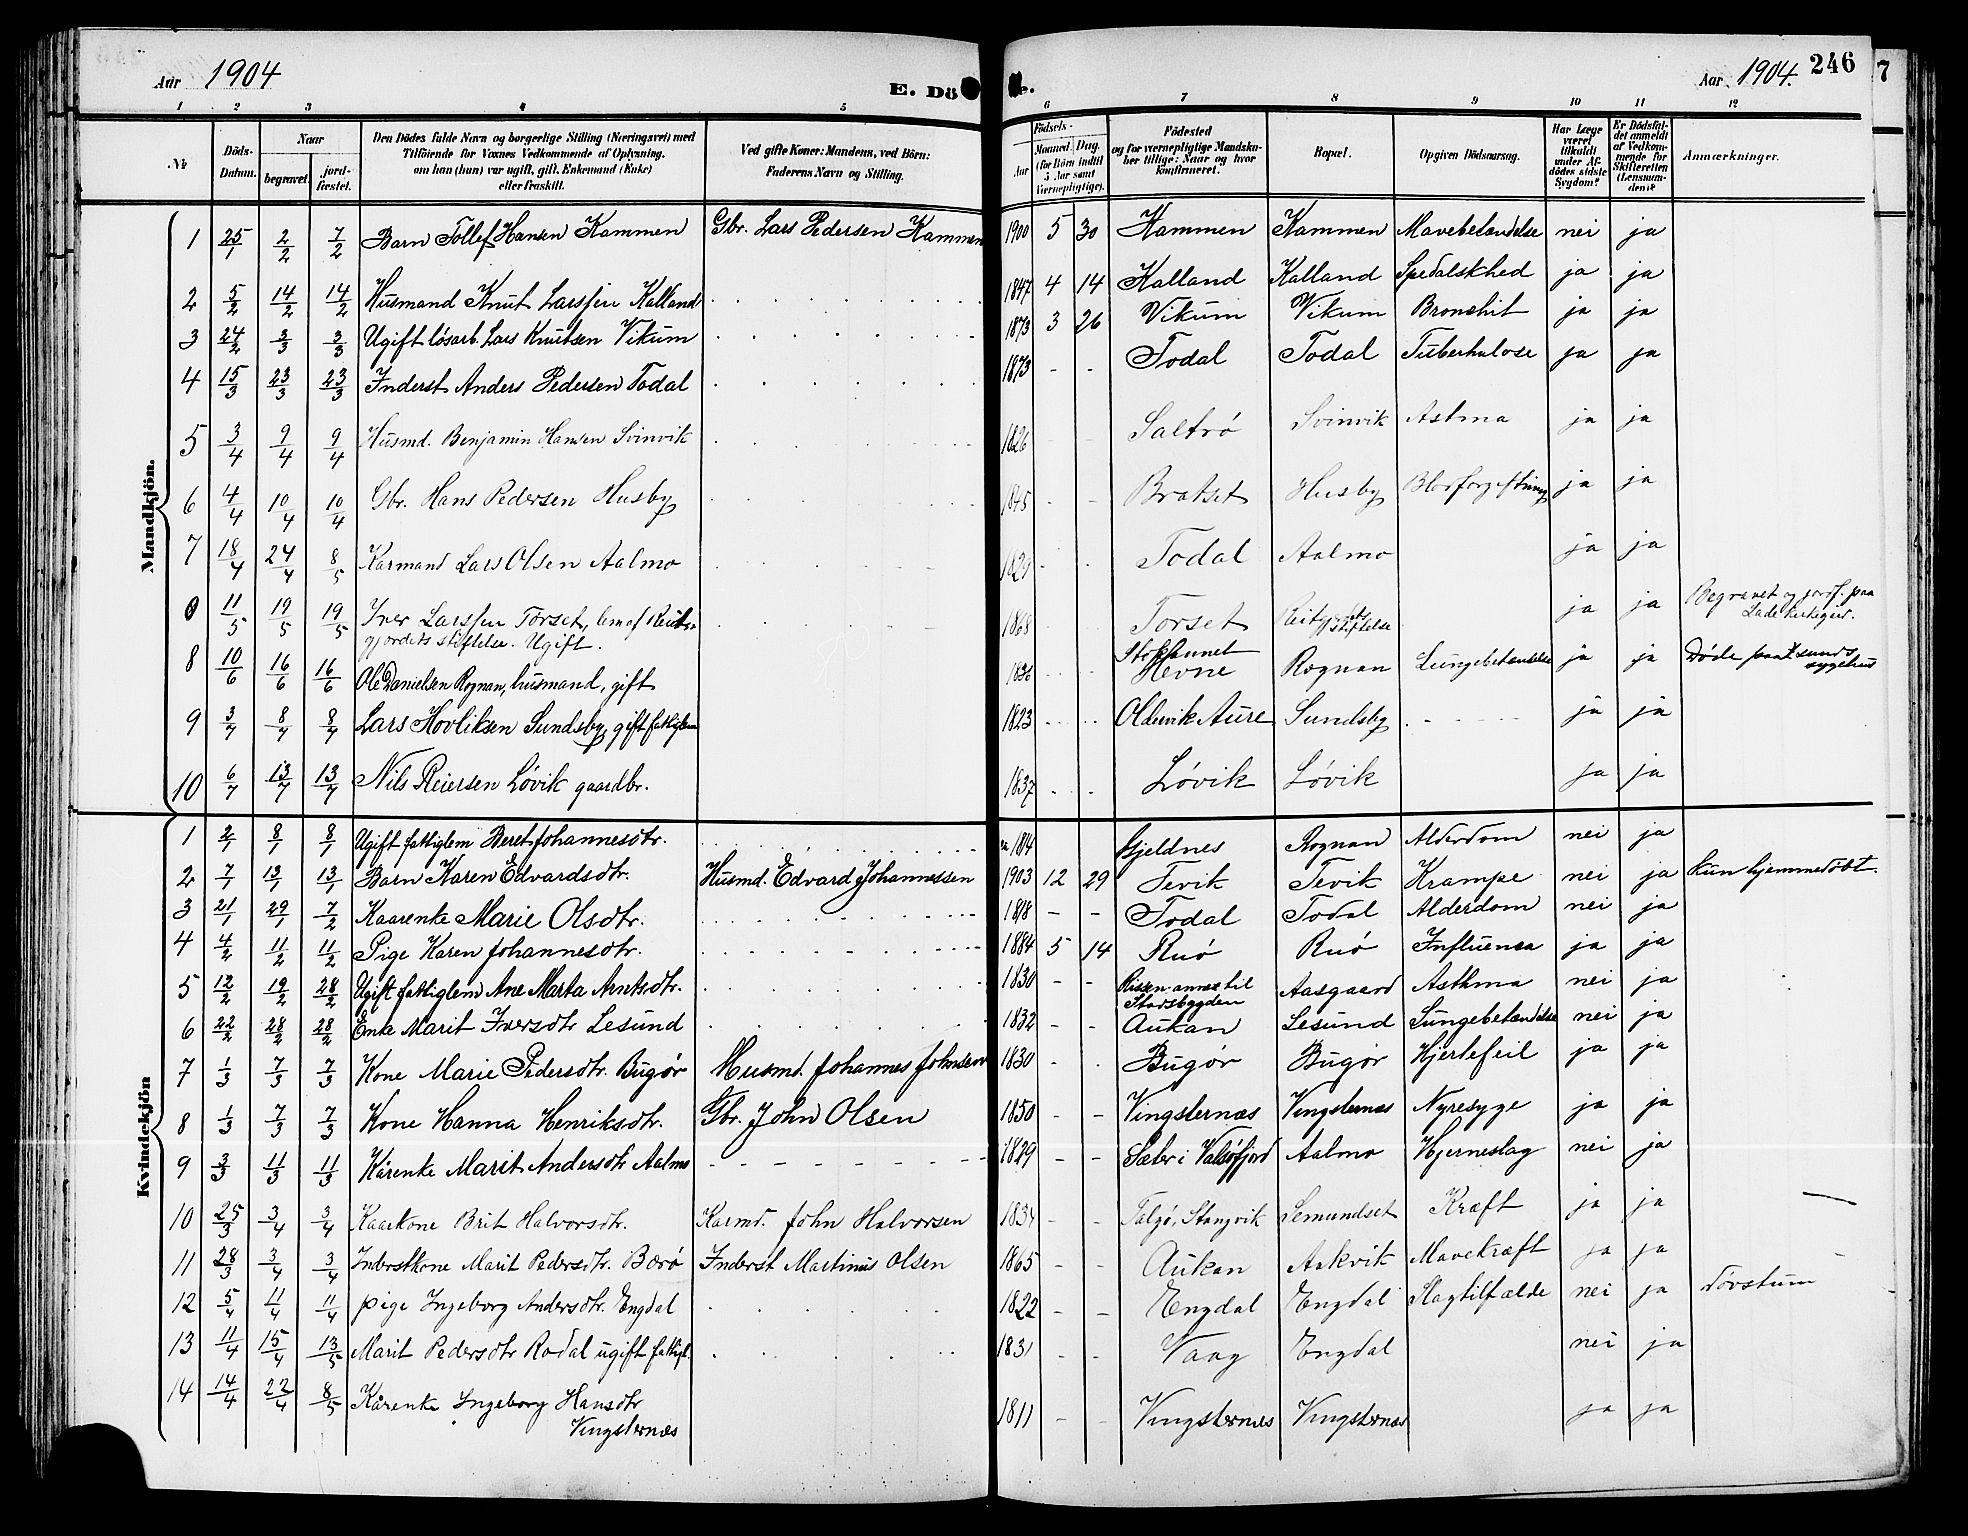 Aar 1904 E. Dö e. Aar 1904. 246 7
1 2 3 4 5 6 7 8 9 10 11 12
№ Döds-Datum. Naar begravet. jordfæstet. Den Dödes fulde Navn og borgerlige Stilling (Næringsvei) med Tilföiende for Voxnes Vedkommende af Oplysning, om han (hun) var ugift, gift, Enkemand (Enke) eller fraskilt. Ved gifte Koner: Mandens, ved Börn: Faderens Navn og Stilling. Födsels- Aar Maaned. Dag. (for Börn indtil 5 Aar samt Værnepligtige). Födested og for værnepligtige Mandskaber tillige: Naar og hvor konfirmeret. Bopæl. Opgiven Dödsaarsag. Har Læge været tilkaldt under Afdödes sidste Sygdom? Er Dödsfaldet anmeldt af Vedkommende for Skifteretten (Lensmanden)? Anmærkninger.
Mandkjön.
1 25/1 2/2 7/2 Barn Tollef Hansen Kammen Gbr. Lars Pedersen Kammen 1900 5 30 Kammen Kammen Mavebetændelse nei ja
2 5/2 14/2 14/2 Husmand Knut Larssen Kalland 1847 4 14 Kalland Kalland Spedalskhed ja ja
3 24/2 3/3 3/3 Ugift løsarb. Lars Knutsen Vikum 1873 3 26 Vikum Vikum Bronchit ja ja
4 15/3 23/3 23/3 Inderst Anders Pedersen Todal 1873 - - Todal Todal Tuberkulose ja ja
5 3/4 9/4 9/4 Husmd. Benjamin Hansen Svinvik 1826 Saltrø Svinvik Astma ja ja
6 4/4 10/4 10/4 Gbr. Hans Pedersen Husby 1845 - - Bratset Husby Blodforgiftning ja ja
7 18/4 24/4 8/5 Karmand Lars Olsen Aalmo 1829 - - Todal Aalmo ja ja
0 11/5 19/5 19/5 Iver Larssen Torset, lem af Reits- 1868 Torset Reitgjerdets stiftelse ja ja Begravet og jordf. paa Lade kirkegaard.
gjerdets stiftelse. Ugift.
8 10/6 16/6 16/6 Ole Danielsen Rognan, husmand, gift 1836 Hevne Rognan Lungebetændelse ja ja Døde paa sygehus
9 3/7 8/7 8/7 Lars Hovliksen Sundsby, gift fattiglem 1823 Oldervik Aure Sundsby ja ja
10 6/7 13/7 13/7 Nils Reiersen Løvik gaardbr. 1837 Løvik Løvik ja ja
Kvindekjön
1 2/1 8/1 8/1 Ugift fattiglem Beret Johannesdtr. 1814 Gjeldnes Rognan Alderdom nei ja
2 7/1 13/1 13/1 Barn Karen Edvardsdtr. Husmd. Edvard Johannessen 1903 12 29 Tevik Tevik Krampe nei ja kun hjemmedöbt.
3 21/1 29/1 7/2 Kaarenke Marie Olsdtr. 1818 - - Todal Todal Alderdom nei ja
4 4/2 11/2 11/2 Pige Karen Johannesdtr. 1884 5 14 Ruø Ruø Influensa ja ja
5 12/2 19/2 28/2 Ugift fattiglem Ane Marta Arntsdtr. 1830 - - Rissen annex til Stadsbygden Aasgaard Asthma nei ja
6 22/2 28/2 28/2 Enke Marit Iversdtr Lesund 1832 - - Aukan Lesund Lungebetændelse nei ja
7 1/3 7/3 7/3 Kone Marie Pedersdtr. Bugør Husmd. Johannes Johnsen 1830 - - Bugør Bugør Hjertefeil ja ja
8 1/3 7/3 7/3 Kone Hanna Henriksdtr. Gbr. John Olsen 1850 - - Vingsternæs Vingsternæs Nyresyge ja ja
9 3/3 11/3 11/3 Kårenke Marit Andersdtr Aalmo 1829 - - Sæter i Valsøfjord Aalmo Hjerneslag nei ja
10 25/3 3/4 3/4 Kaarkone Brit Halvorsdtr. Karmd. John Halvorsen 1834 - - Talgø, Stangvik Lemundset Kræft ja ja
11 28/3 3/4 3/4 Inderstkone Marit Pedersdtr. Bærø Inderst Martinus Olsen 1865 - - Aukan Aakvik Mavekræft ja ja
12 5/4 11/4 11/4 pige Ingeborg Andersdtr. Engdal 1822 - - Engdal Engdal Slagtilfælde nei ja dövstum
13 11/4 15/4 13/5 Marit Pedersdtr Rodal ugift fattigl. 1831 - - Vaag Engdal nei ja
14 14/4 22/4 8/5 Kårenke Ingeborg Hansdtr 1811 - - Vingsternæs Vingsternæs ja ja
Vingsternæs